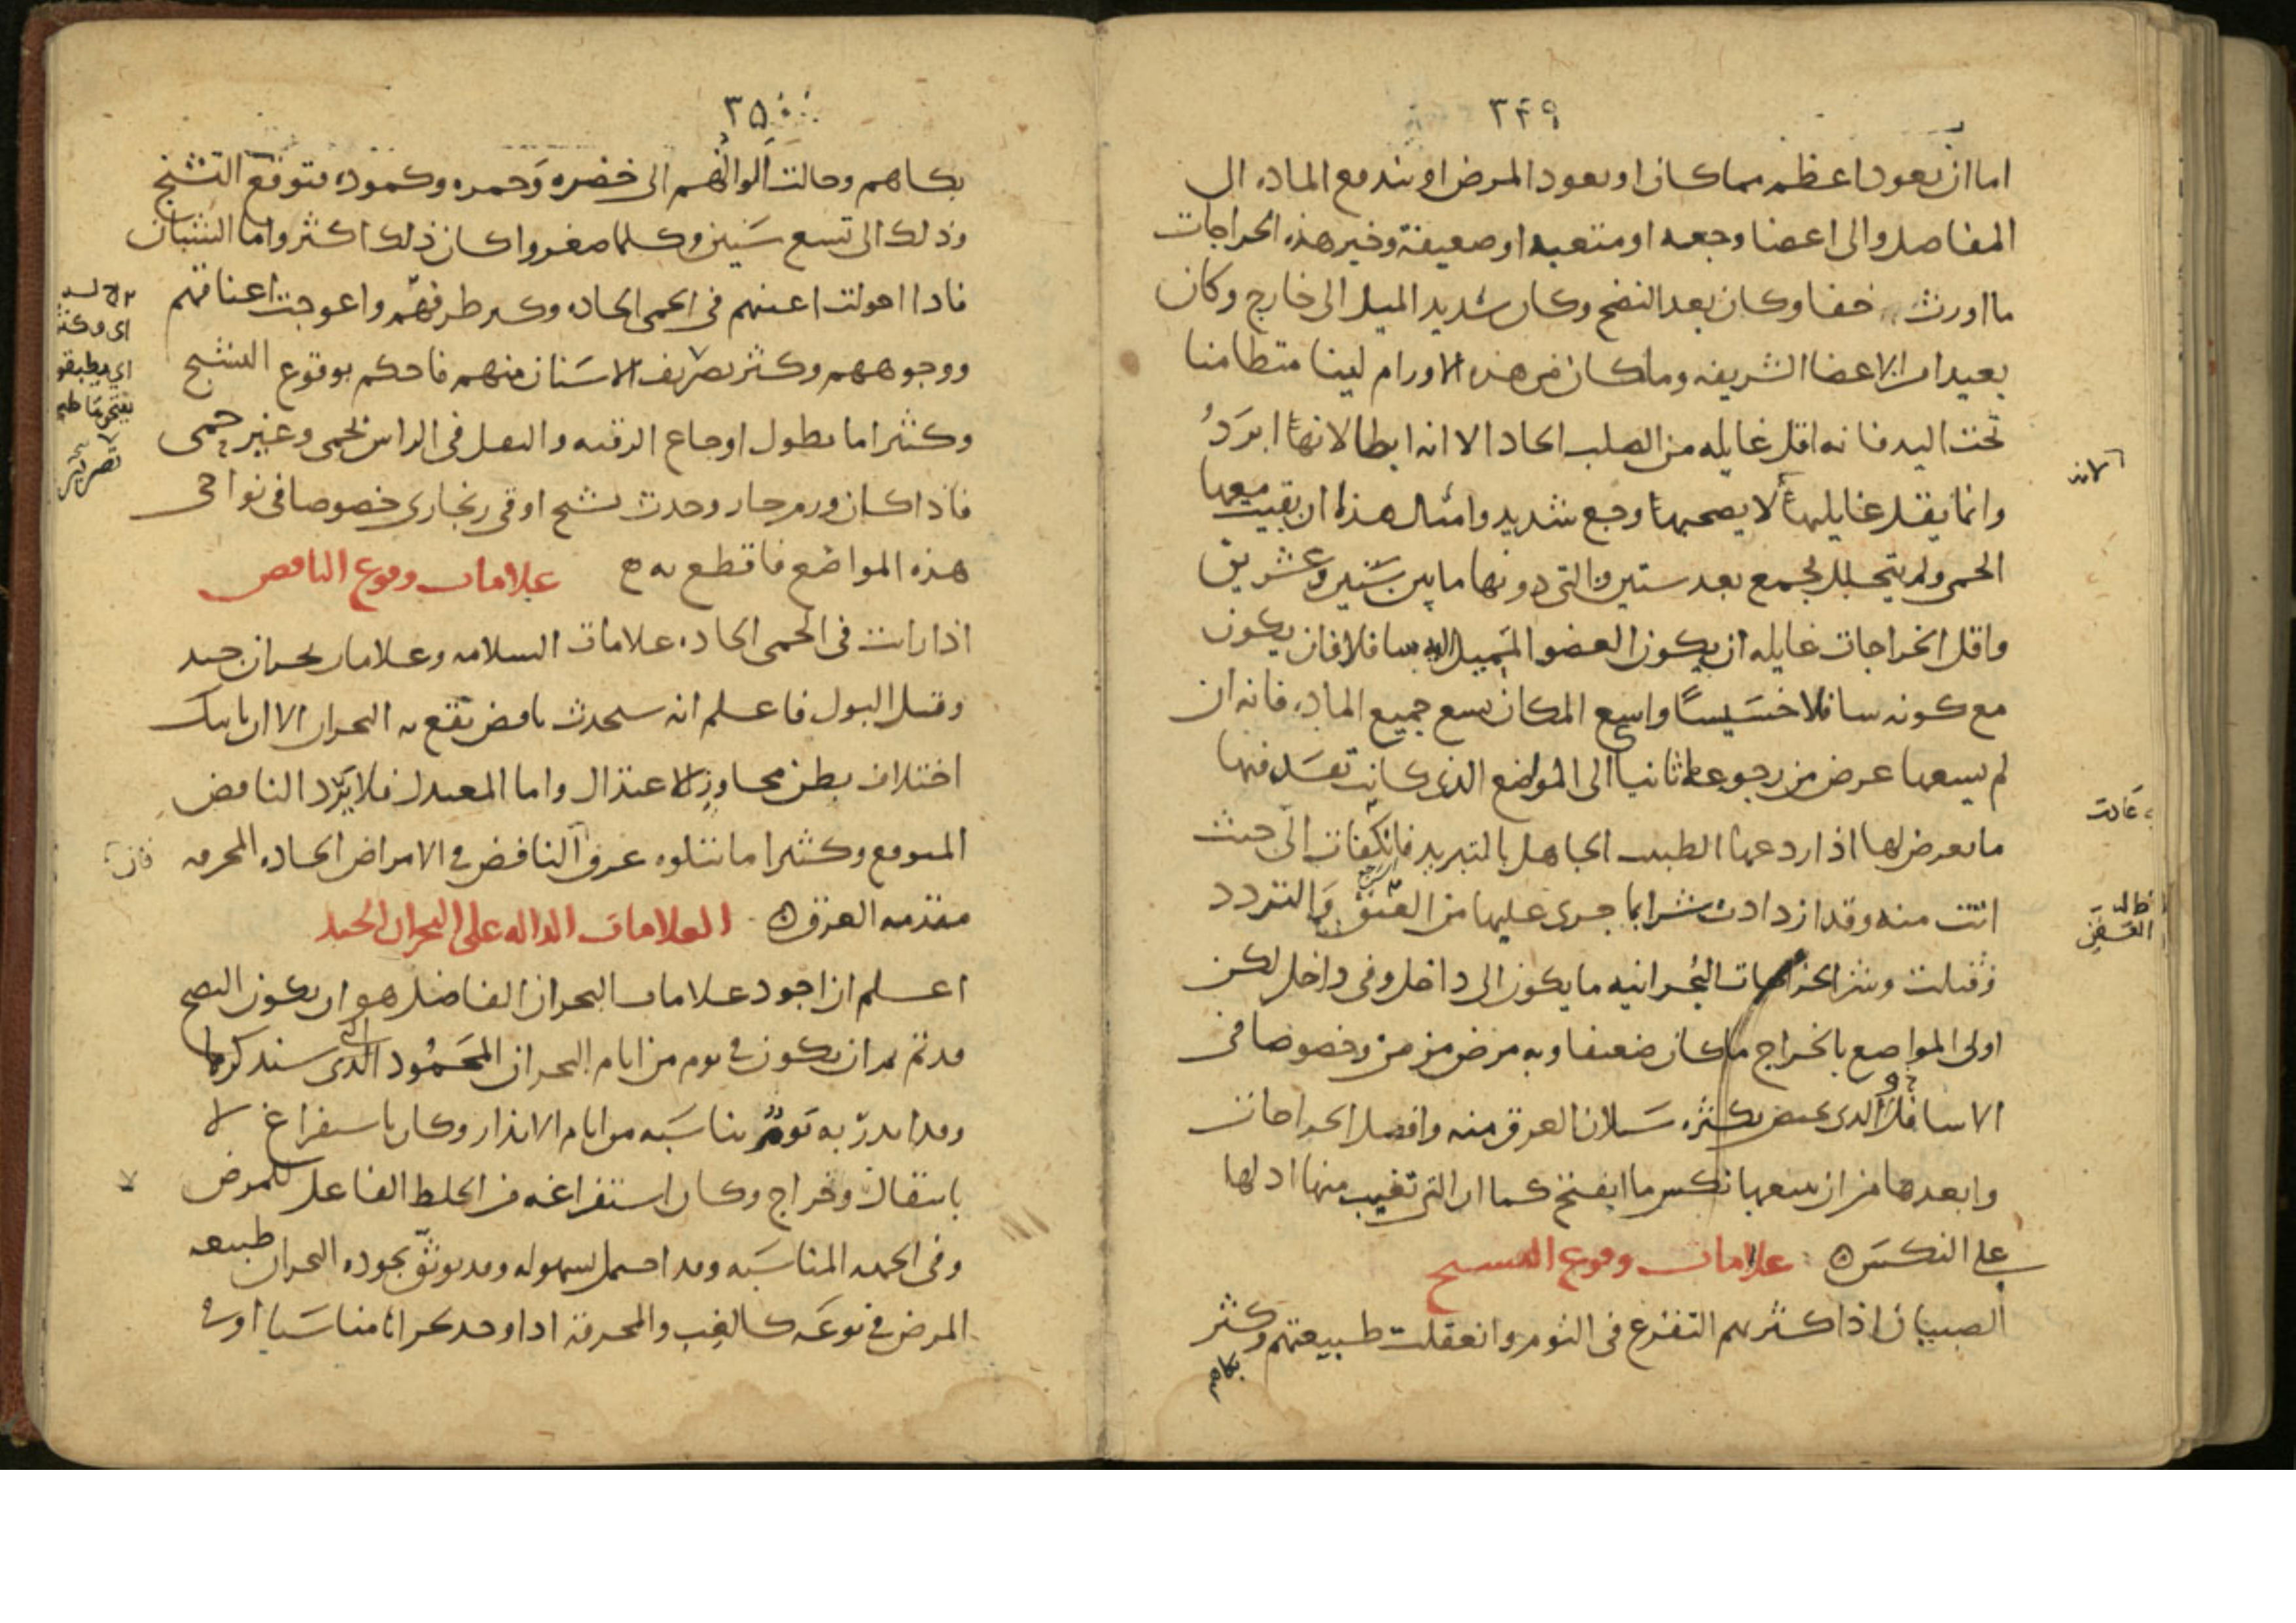 ٣٤٩
اما ان يعود اعظم مما كان او يعود المرض او يندفع الماده الى
المفاصل والى اعضا وجعه او متعبه او ضعيفة وخير هذه الخراجات
ما اورث خفا وكان بعد النضج وكان شديد الميل الى خارج وكان
بعيدا من الاعضا الشريفه وما كان من هذه الاورام لينا متطامنا
تحت اليد فانه اقل غايله من الصلب الحاد الا انه ابطا لانها ابرد
وانما يقل غايليها لا يصحبها وجع شديد وامثال هذه ان بقيت معها
الحمى ولم يتحلل لجمع بعد ستين والتى دونها ما بين ستين وعشرين
واقل الخراجات غايله ان يكون العضو المميل اليه سافلا فان يكون
مع كونه سافلا خسيسا واسع المكان يسع جميع الماده فانه ان
لم يسعها عرض من رجوعها ثانيا الى المواضع الذى كانت تفسد فيها
ما يعرض لها اذا ردعها الطبيب الجاهل بالتبريد فانكفات الى حيث
اتت منه وقد ازدادت شرا بما جرى عليها من العفن والتردد
فقتلت وشر الخراجات البحرانيه ما يكون الى داخل وفى داخل لكن
اولى المواضع بالخراج ما كان ضعيفا وبه مرض مزمن وخصوصا فى
الاسافل الذى يكثر سيلان العرق منه وافضل الخراجات
وابعدها من ان يتبعها نكس ما انفتح كما ان التى تغيب منها ادلها
على النكس علامات وقوع التشنج
الصبيان اذا كثر بهم التفزع فى النوم وانعقلت طبيعتهم وكثر
بكاهم
لانه
عادت
العفن
٣٥٠
بكاهم وحالت الوانهم الى خضره وحمره وكموده فتوقع التشنج
وذلك الى تسع سنين وكلما صغروا كان ذلك اكثر واما الشبان
فاذا احولت اعينهم فى الحمى الحاده وكثر طرفهم واعوجت اعناقهم
ووجوههم وكثر تصريف الاسنان منهم فاحكم بوقوع التشنج
وكثيرا ما يطول اوجاع الرقبه والثقل فى الراس بحمى وغير حمى
فاذا كان ورم حار وحدث تشنج او قى زنجارى خصوصا فى نواحى
هذه المواضع فاقطع به علامات وقوع النافض
اذا رايت فى الحمى الحاده علامات السلامه وعلامات بحران جيد
وقتل البول فاعلم انه سيحدث نافض يقع به البحران الا ان ياتيك
اختلاف بطن مجاوز الاعتدال واما المعتدل فلا يرد النافض
المتوقع وكثيرا ما تتلوه عرق النافض فى الامراض الحاده المحرقه
مقدمه العرق العلامات الداله على البحران الجيد
اعلم ان اجود علامات البحران الفاضل هو ان يكون النضج
قد تم ثم ان يكون فى يوم من ايام البحران المحمود الذى سنذكرها
وقد انذر به يوم يناسبه من ايام الانذار وكان باستفراغ لا
بانتقال وخراج وكان استفراغه من الخلط الفاعل للمرض
وفى الجهه المناسبه وقد احتمل بسهوله وقد يوثق بجوده البحران طبيعه
المرض فى نوعه كالغب والمحرقة اذا وجد بحرانا مناسبا او فى
فان